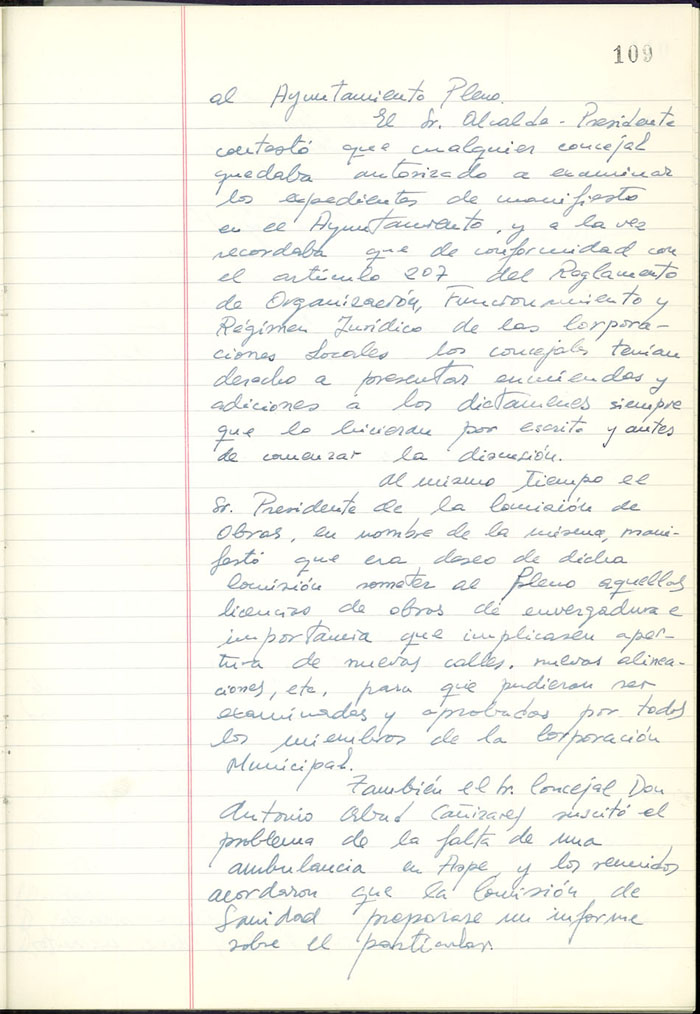 109
al Ayuntamiento Pleno.
El Sr. Alcalde-Presidente
contestó que cualquier concejal
quedaba autorizado a examinar
los expedientes de manifiesto
en el Ayuntamiento, y a la vez
recordaba que de conformidad con
el artículo 207 del Reglamento
de Organización, Funcionamiento y
Régimen Jurídico de las Corpora-
ciones Locales los concejales tenían
derecho a presentar enmiendas y
adiciones a los dictámenes siempre
que lo hicieran por escrito y antes
de comenzar la discusión.
Al mismo tiempo el
Sr. Presidente de la Comisión de
Obras, en nombre de la misma, mani-
festó que era deseo de dicha
Comisión someter al Pleno aquellas
licencias de obras de envergadura e
importancia que implicasen aper-
tura de nuevas calles, nuevas alinea-
ciones, etc, para que pudieran ser
examinadas y aprobadas por todos
los miembros de la Corporación
Municipal.
También el Sr. Concejal Don
Antonio Cañizares suscitó el
problema de la falta de una
ambulancia en Aspe y los reunidos
acordaron que la Comisión de
Sanidad preparase un informe
sobre el particular.